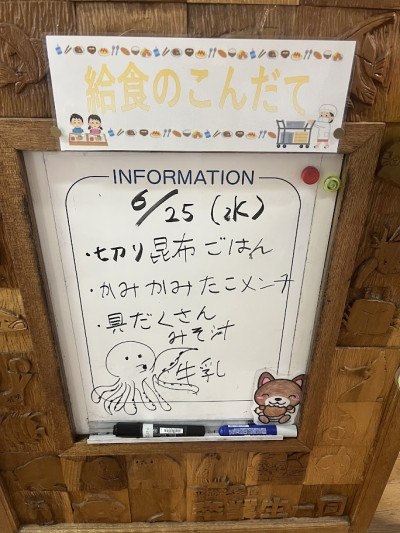 給食のこんだて
INFORMATION
6/25(水)
・切り昆布ごはん
・かみかみたこメンチ
・具だくさん
みそ汁
牛乳